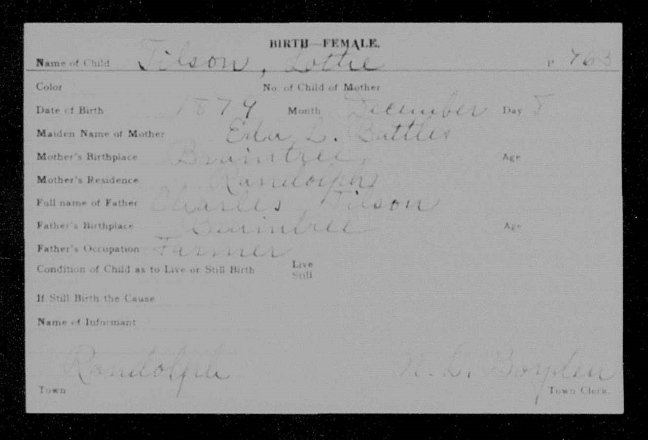 BIRTH—FEMALE.
Name of Child Tilson, Lottie P. 763
Color No. of Child of Mother
Date of Birth 1874 Month December Day 8
Maiden Name of Mother Eda L. Battles
Mother's Birthplace Braintree Age
Mother's Residence Randolph
Full name of Father Charles Tilson
Father's Birthplace Braintree Age
Father's Occupation Farmer
Condition of Child as to Live or Still Birth Live
Still
If Still Birth the Cause
Name of Informant
Randolph R. L. Boyden
Town Town Clerk.